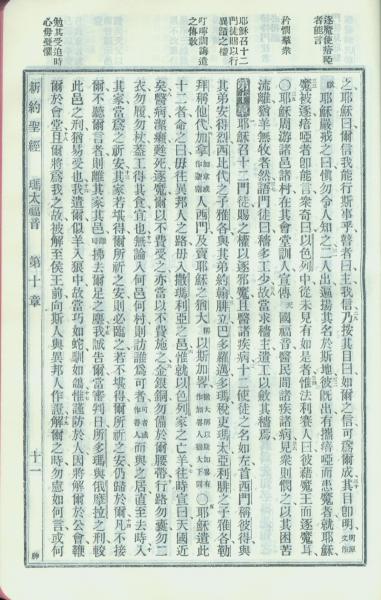 逐魔使瘖啞
者能言
矜憫羣衆
耶穌召十二
門徒賜以行
異蹟之權
叮嚀訓誨遣
之傳教
勉其受迫時
心毋憂懼
之耶穌曰爾信我能行斯事乎瞽者曰主我信乃按其目曰如爾之信可爲爾成其目卽明
耶穌嚴斯之曰愼勿令人知之二人出遍揚其名於斯地旣出有攜瘖啞而患魔者就耶穌
魔被逐瘖啞者卽能言衆奇曰以色列中從未見有如是者惟法利賽人曰彼藉魔王而逐魔耳
○耶穌周游諸邑諸村在其會堂訓人宣傳天國福音醫民間諸疾諸病見衆則憫之以其困苦
流離猶羊無牧者然謂門徒曰穡多工少故當求穡主遣工以斂其穡焉
第十章耶穌召十二門徒賜之權以逐邪魔且醫諸疾諸病十二使徒之名如左首西門稱彼得與
其弟安得烈西比代之子雅各與其弟約翰腓立巴多羅邁多瑪稅吏瑪太亞利腓之子雅各勒
拜稱他代加拿人西門及賣耶穌之猶大稱以斯加畧○耶穌遣此
十二者命之曰毋往異邦人之路毋入撒瑪利亞之邑惟就以色列家之亡羊往時宣曰天國近
矣醫病潔癩甦死逐魔爾以不費受之亦當以不費施之金銀銅勿備於爾腰帶行路勿囊勿二
衣勿履勿杖蓋工得其食宜也無論入何邑何村則訪誰爲可者而與之居直至去時入
其家當爲之祈安其家若堪得爾所祈之安則必臨之若不堪得爾所祈之安仍歸於爾凡不接
爾不聽爾言者則離其家其邑時拂去爾足之塵我誠告爾當審判日所多瑪與俄摩拉之刑較
此邑之刑猶易受也我遣爾似羊入狼中故當巧如蛇馴如鴿惟謹防於人因將解爾於公會鞭
爾於會堂且爾將爲我之故被解至侯王前向斯人與異邦人作證解爾之時勿慮如何言或何
新約聖經 瑪太福音 第十章 十一